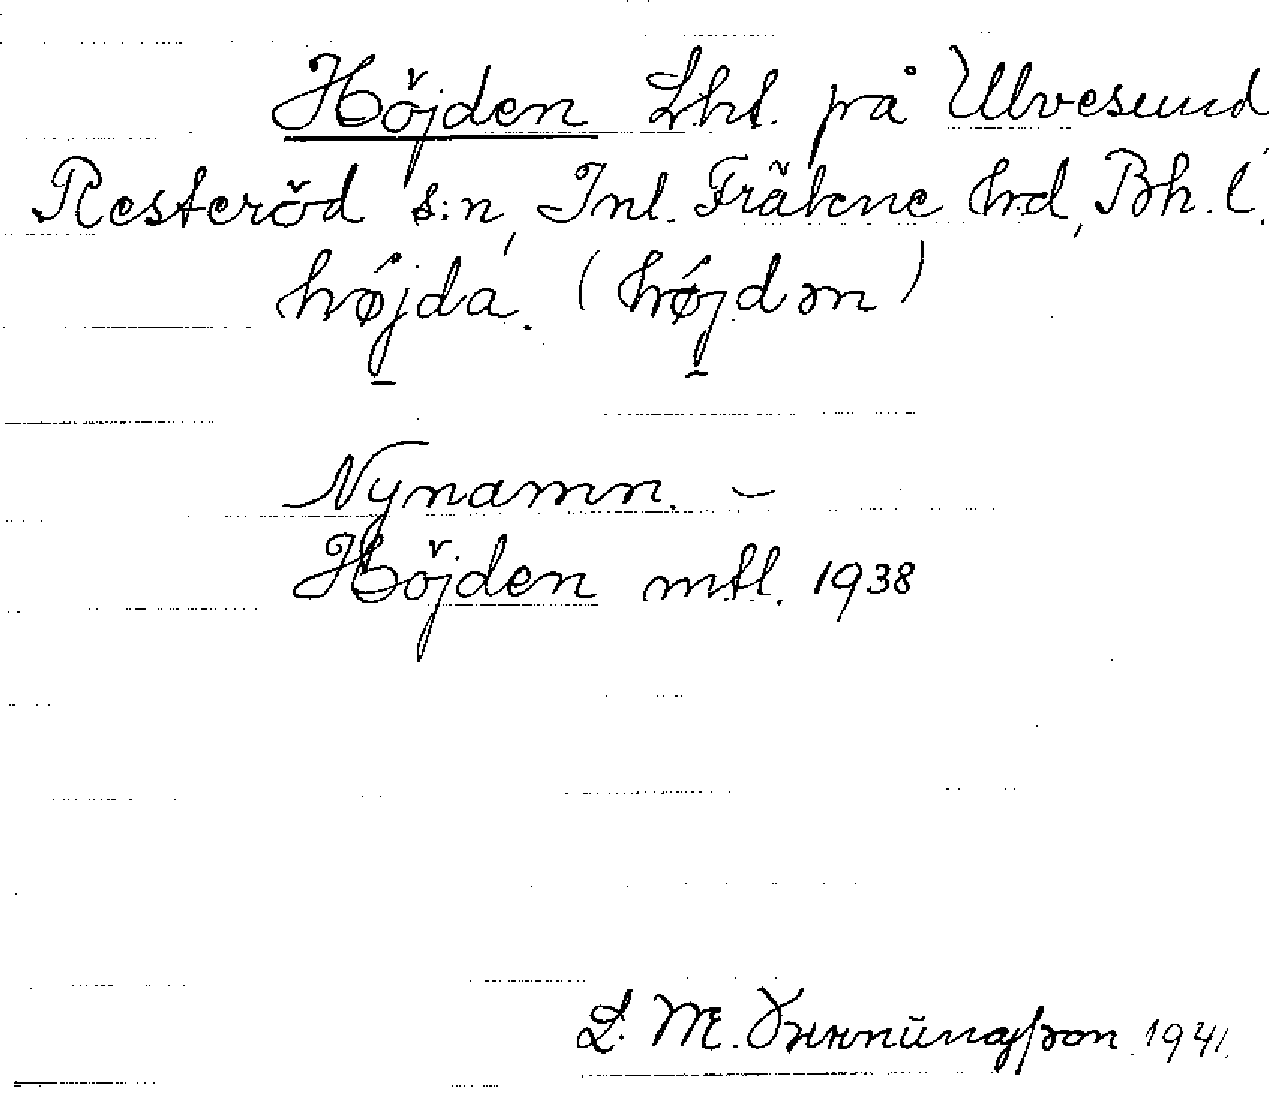 Höjden Lht. på Ulvesund
Resteröd s:n, Inl. Fräkne hd, Bh. l.
højda. (højdən)
Nynamn. –
Höjden mtl. 1938
L. M. 1941.